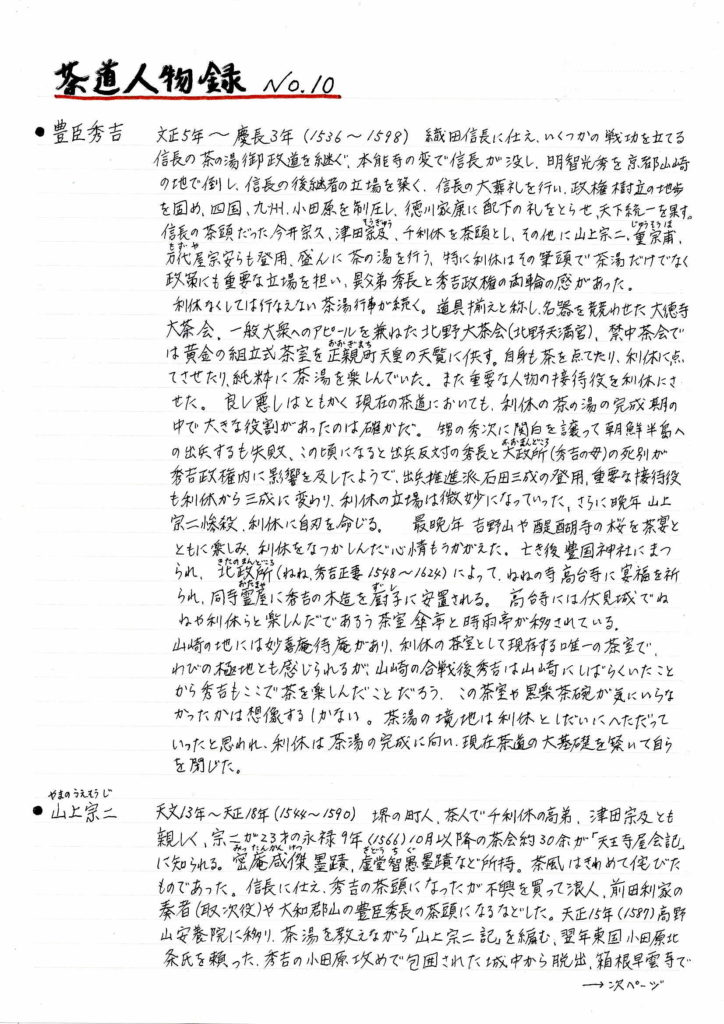 茶道人物録 No.10
● 豊臣秀吉 文正5年〜慶長3年(1536〜1598) 織田信長に仕え、いくつかの戦功を立てる
信長の茶の湯御政道を継ぐ、本能寺の変で信長が没し、明智光秀を京都山崎
の地で倒し、信長の後継者の立場を築く、信長の大葬礼を行い、政権樹立の地歩
を固め、四国、九州、小田原を制圧し、徳川家康に配下の礼をとらせ、天下統一を果す。
そうぎゅう じゅうそうほ
信長の茶頭だった今井宗久、津田宗及、千利休を茶頭とし、その他に山上宗二、重宗甫、
もずや
万代屋宗安らも登用、盛んに茶の湯を行う、特に利休はその筆頭で茶湯だけでなく
政策にも重要な立場を担い、異父弟秀長と秀吉政権の両輪の感があった。
利休なくしては行なえない茶湯行事が続く。道具揃えと称し、名器を競わせた大徳寺
大茶会、一般大衆へのアピールを兼ねた北野大茶会(北野天満宮)、禁中茶会で
おおぎまち
は黄金の組立式茶室を正親町天皇の天覧に供す。自身も茶を点てたり、利休に点
てさせたり、純粋に茶湯を楽しんでいた。また重要な人物の接待役を利休にさ
せた。良し悪しはともかく現在の茶道においても、利休の茶の湯の完成期の
中で大きな役割があったのは確かだ。甥の秀次に関白を譲って朝鮮半島へ
おおまんどころ
の出兵するも失敗、この頃になると出兵反対の秀長と大政所(秀吉の母)の死別が
秀吉政権内に影響を及したようで、出兵推進派石田三成の登用、重要な接待役
も利休から三成に変わり、利休の立場は微妙になっていった、さらに晩年山上
宗二惨殺、利休に自刃を命じる。 最晩年 吉野山や醍醐寺の桜を茶宴と
ともに楽しみ、利休をなつかしんだ心情もうかがえた。亡き後豊国神社にまつ
きたのまんどころ
られ、北政所(ねね、秀吉正妻1548〜1624)によって、ねねの寺高台寺に冥福を祈
おたまや ずし
られ、同寺霊屋に秀吉の木造を厨子に安置される。 高台寺には伏見城でね
ねや利休らと楽しんだであろう茶室 傘亭と時雨亭が移されている。
山崎の地には妙喜庵待庵があり、利休の茶室として現存する唯一の茶室で、
わびの極地とも感じられるが、山崎の合戦後秀吉は山崎にしばらくいたこと
から秀吉もここで茶を楽しんだことだろう、この茶室や黒楽茶碗が気にいらな
かったかは想像するしかない。茶湯の境地は利休としだいにへただって
いったと思われ、利休は茶湯の完成に向い、現在茶道の大基礎を築いて自ら
を閉じた。
やまのうえそうじ
● 山上宗二 天文13年〜天正18年(1544〜1590) 堺の町人、茶人で千利休の高弟、津田宗及とも
親しく、宗二が23才の永禄9年(1566)10月以降の茶会約30余が「天王寺屋会記」
みったんかんけつ きどうちぐ
に知られる。密庵咸傑墨蹟、虚堂智愚墨蹟など所持。茶風はきわめて侘びた
ものであった。信長に仕え、秀吉の茶頭になったが不興を買って浪人、前田利家の
奏者(取次役)や大和郡山の豊臣秀長の茶頭になるなどした。天正15年(1587)高野
山安養院に移り、茶湯を教えながら「山上宗二記」を編む、翌年東国小田原北
条氏を頼った、秀吉の小田原攻めで包囲された城中から脱出、箱根早雲寺で
→次ページ